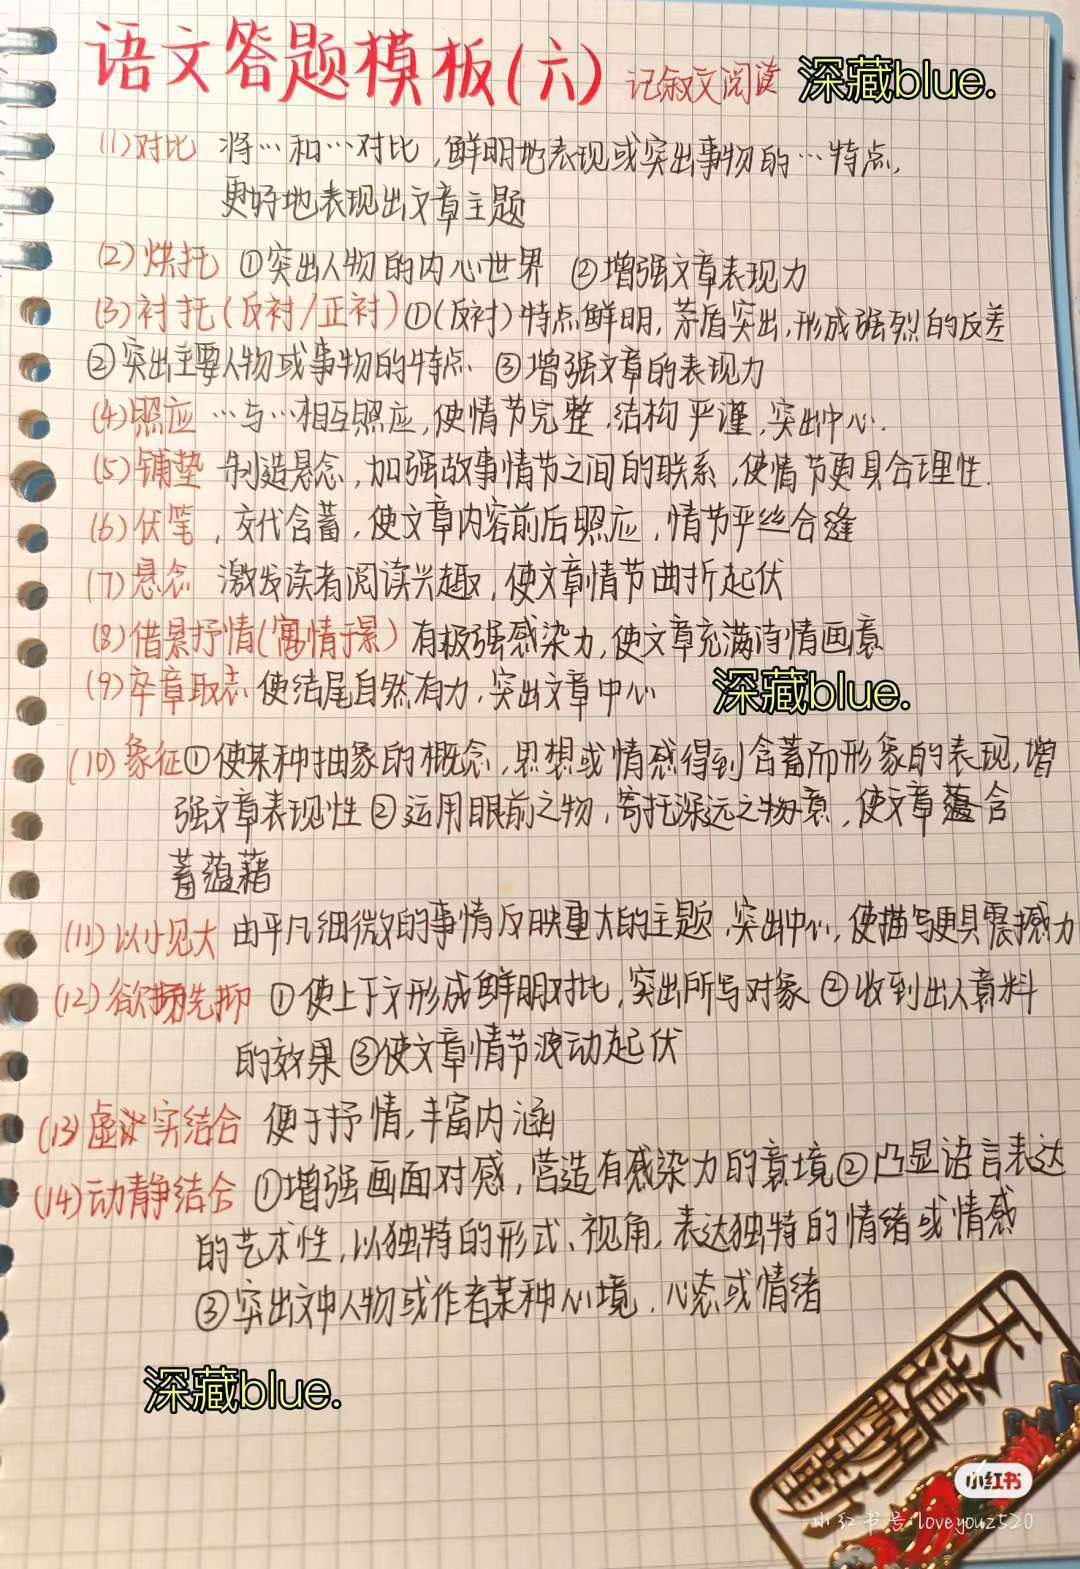 语文答题模板(六) 记叙文阅读 深藏blue.
(1)对比 将…和…对比,鲜明地表现或突出事物的…特点,
更好地表现出文章主题
(2)烘托 ①突出人物的内心世界 ②增强文章表现力
(3)衬托(反衬/正衬)①(反衬)特点鲜明,茅盾突出,形成强烈的反差
②突出主要人物或事物的特点. ③增强文章的表现力
(4)照应 …与…相互照应,使情节完整,结构严谨,突出中心.
(5)铺垫 制造悬念,加强故事情节之间的联系,使情节更具合理性.
(6)伏笔,交代含蓄,使文章内容前后照应,情节严丝合缝
(7)悬念 激发读者阅读兴趣,使文章情节曲折起伏
(8)借景抒情(寓情于景)有极强感染力,使文章充满诗情画意
(9)卒章取志 使结尾自然有力,突出文章中心 深藏blue.
(10)象征①使某种抽象的概念,思想或情感得到含蓄而形象的表现,增
强文章表现性②运用眼前之物,寄托深远之物意,使文章 含
蓄蕴藉
(11)以小见大 由平凡细微的事情反映重大的主题,突出中心,使描写更具震撼力
(12)欲扬先抑 ①使上下文形成鲜明对比,突出所写对象②收到出人意料
的效果③使文章情节波动起伏
(13)虚实结合 便于抒情,丰富内涵
(14)动静结合 ①增强画面对感,营造有感染力的意境②凸显语言表达
的艺术性,以独特的形式、视角,表达独特的情绪或情感
③突出文中人物或作者某种心境,心态或情绪
深藏blue.
小红书
小红书号:loveyouz520